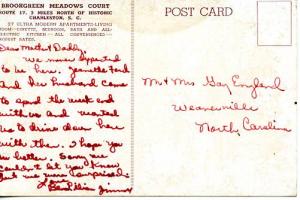 BROOKGREEN MEADOWS COURT
ROUTE 17, 3 MILES NORTH OF HISTORIC
CHARLESTON, S. C.
27 ULTRA MODERN APARTMENTS-LIVING
ROOM-DINETTE, BEDROOM, BATH AND ALL-
ELECTRIC KITCHEN - ALL CONVENIENCES-
HONEST RATES.
POST CARD
Dear Mother & Daddy,
We never expected
to be here. Jeanette Ford
and her husband came
to spend the week end
with us and wanted
us to drive down here
with them. I hope you
are better. Sorry we
couldn't let you know
but we were surprised.
Love
Jimmy
Mr & Mrs Gay England
Weaverville
North Carolina